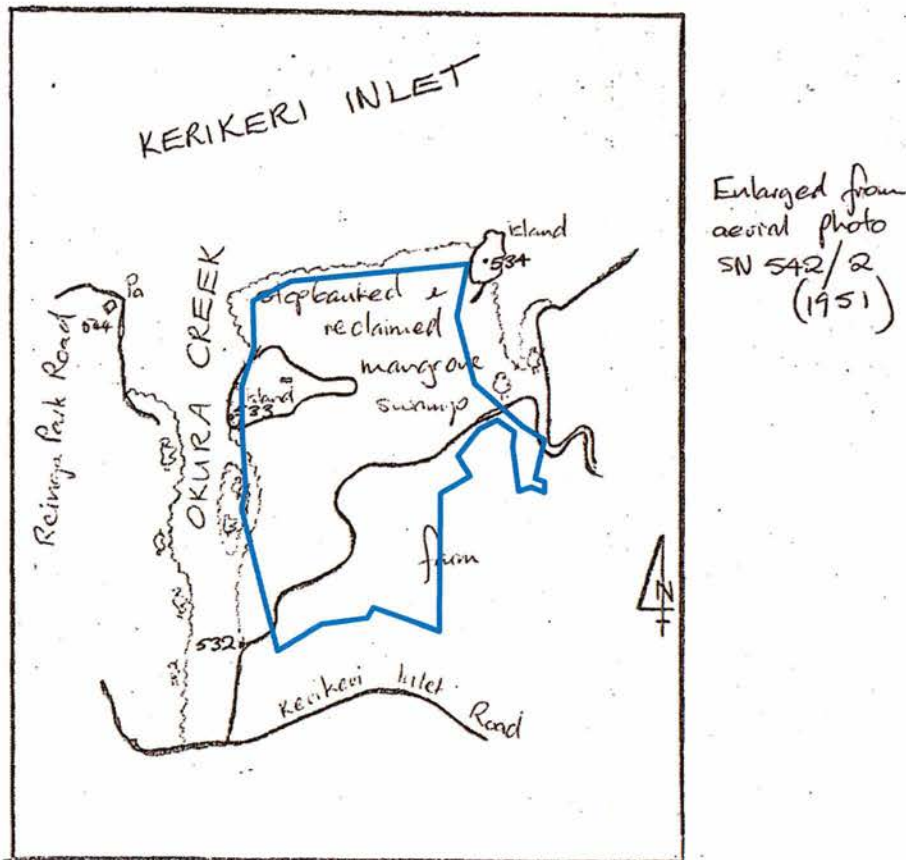 KERIKERI INLET
Enlarged from
aerial photo
SN 542/2
(1951)
island
534
Pa
544
stopbanked &
reclaimed
mangrove
swamp
OKURA CREEK
island
533
Reinga Park Road
farm
532
Kerikeri Inlet
Road
N